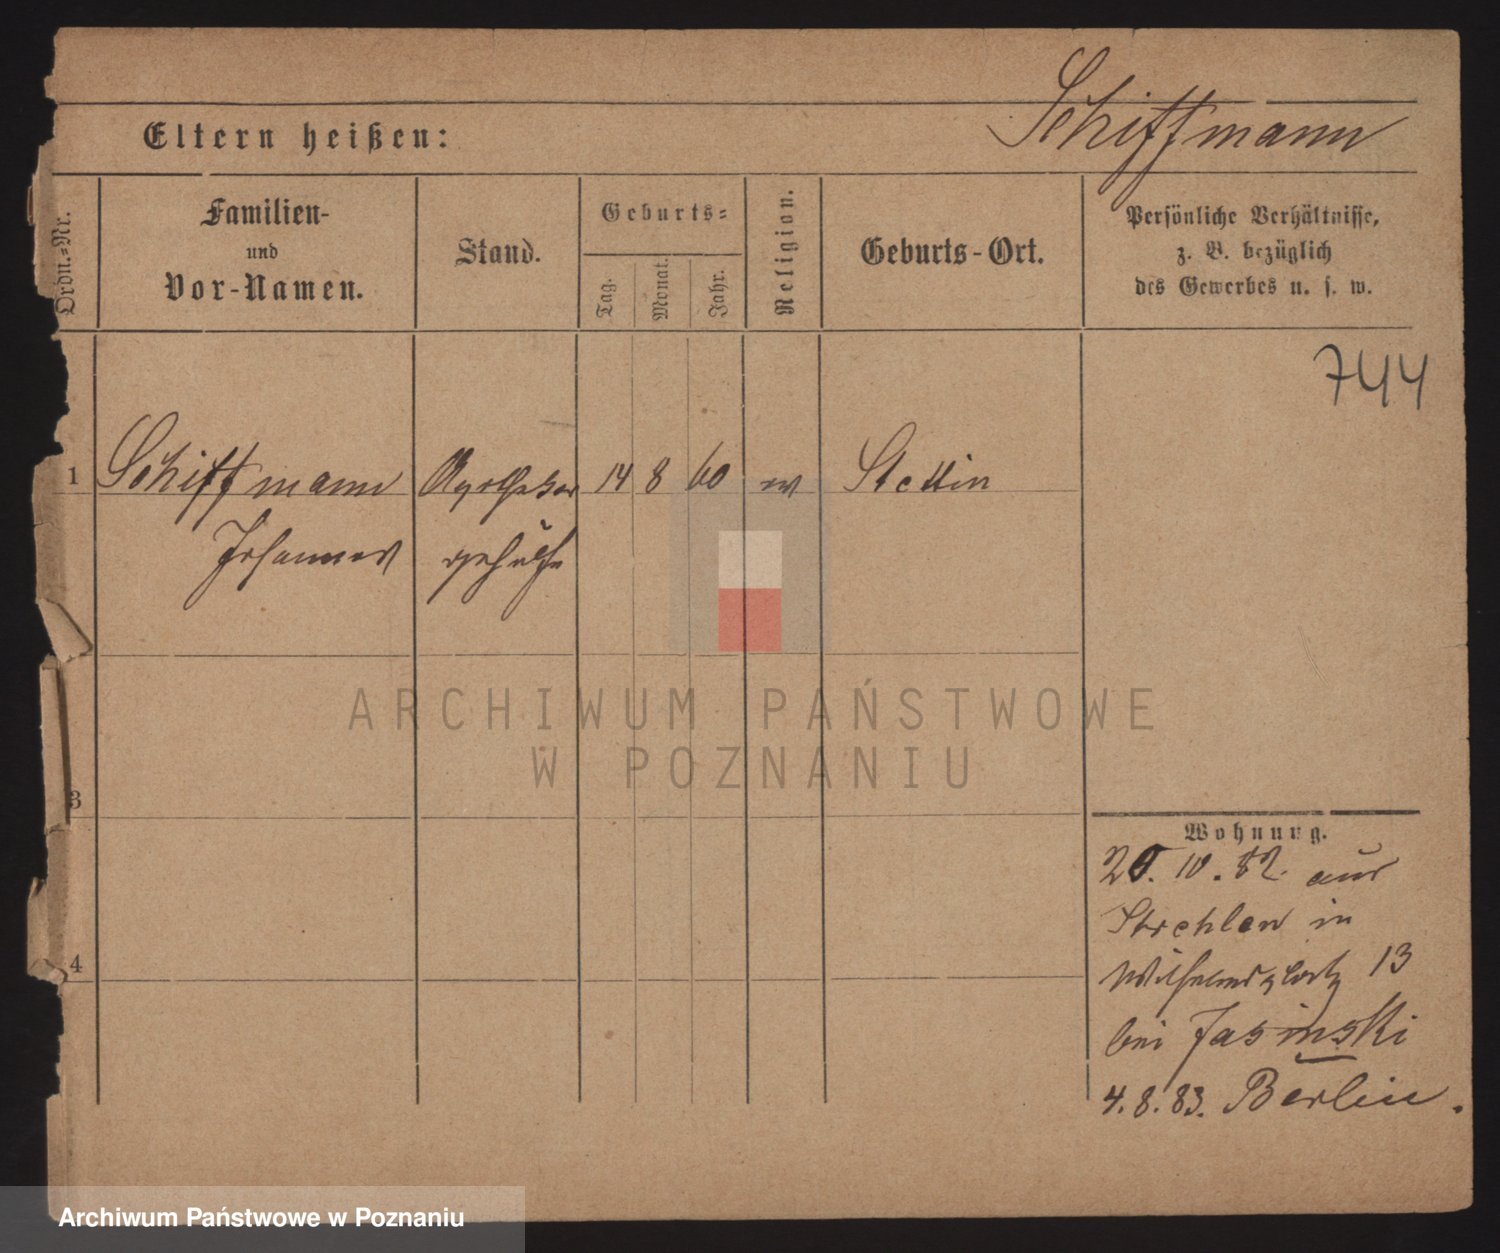 Schiffmann
Eltern heißen:
Ordn.-Nr.
Familien-
und
Vor-Namen.
Stand.
Geburts-
Tag.
Monat.
Jahr.
Religion.
Geburts-Ort.
Persönliche Verhältnisse,
z. B. bezüglich
des Gewerbes u. s. w.
744
1 Schiffmann Apotheker 14 8 60 ev Stettin
Johannes gehülfe
ARCHIWUM PAŃSTWOWE
W POZNANIU
3
Wohnung.
10. 82. aus
Strehlen in
4
Wilhelmsplatz 13
bei Jasinski
4. 8. 83. Berlin.
Archiwum Państwowe w Poznaniu